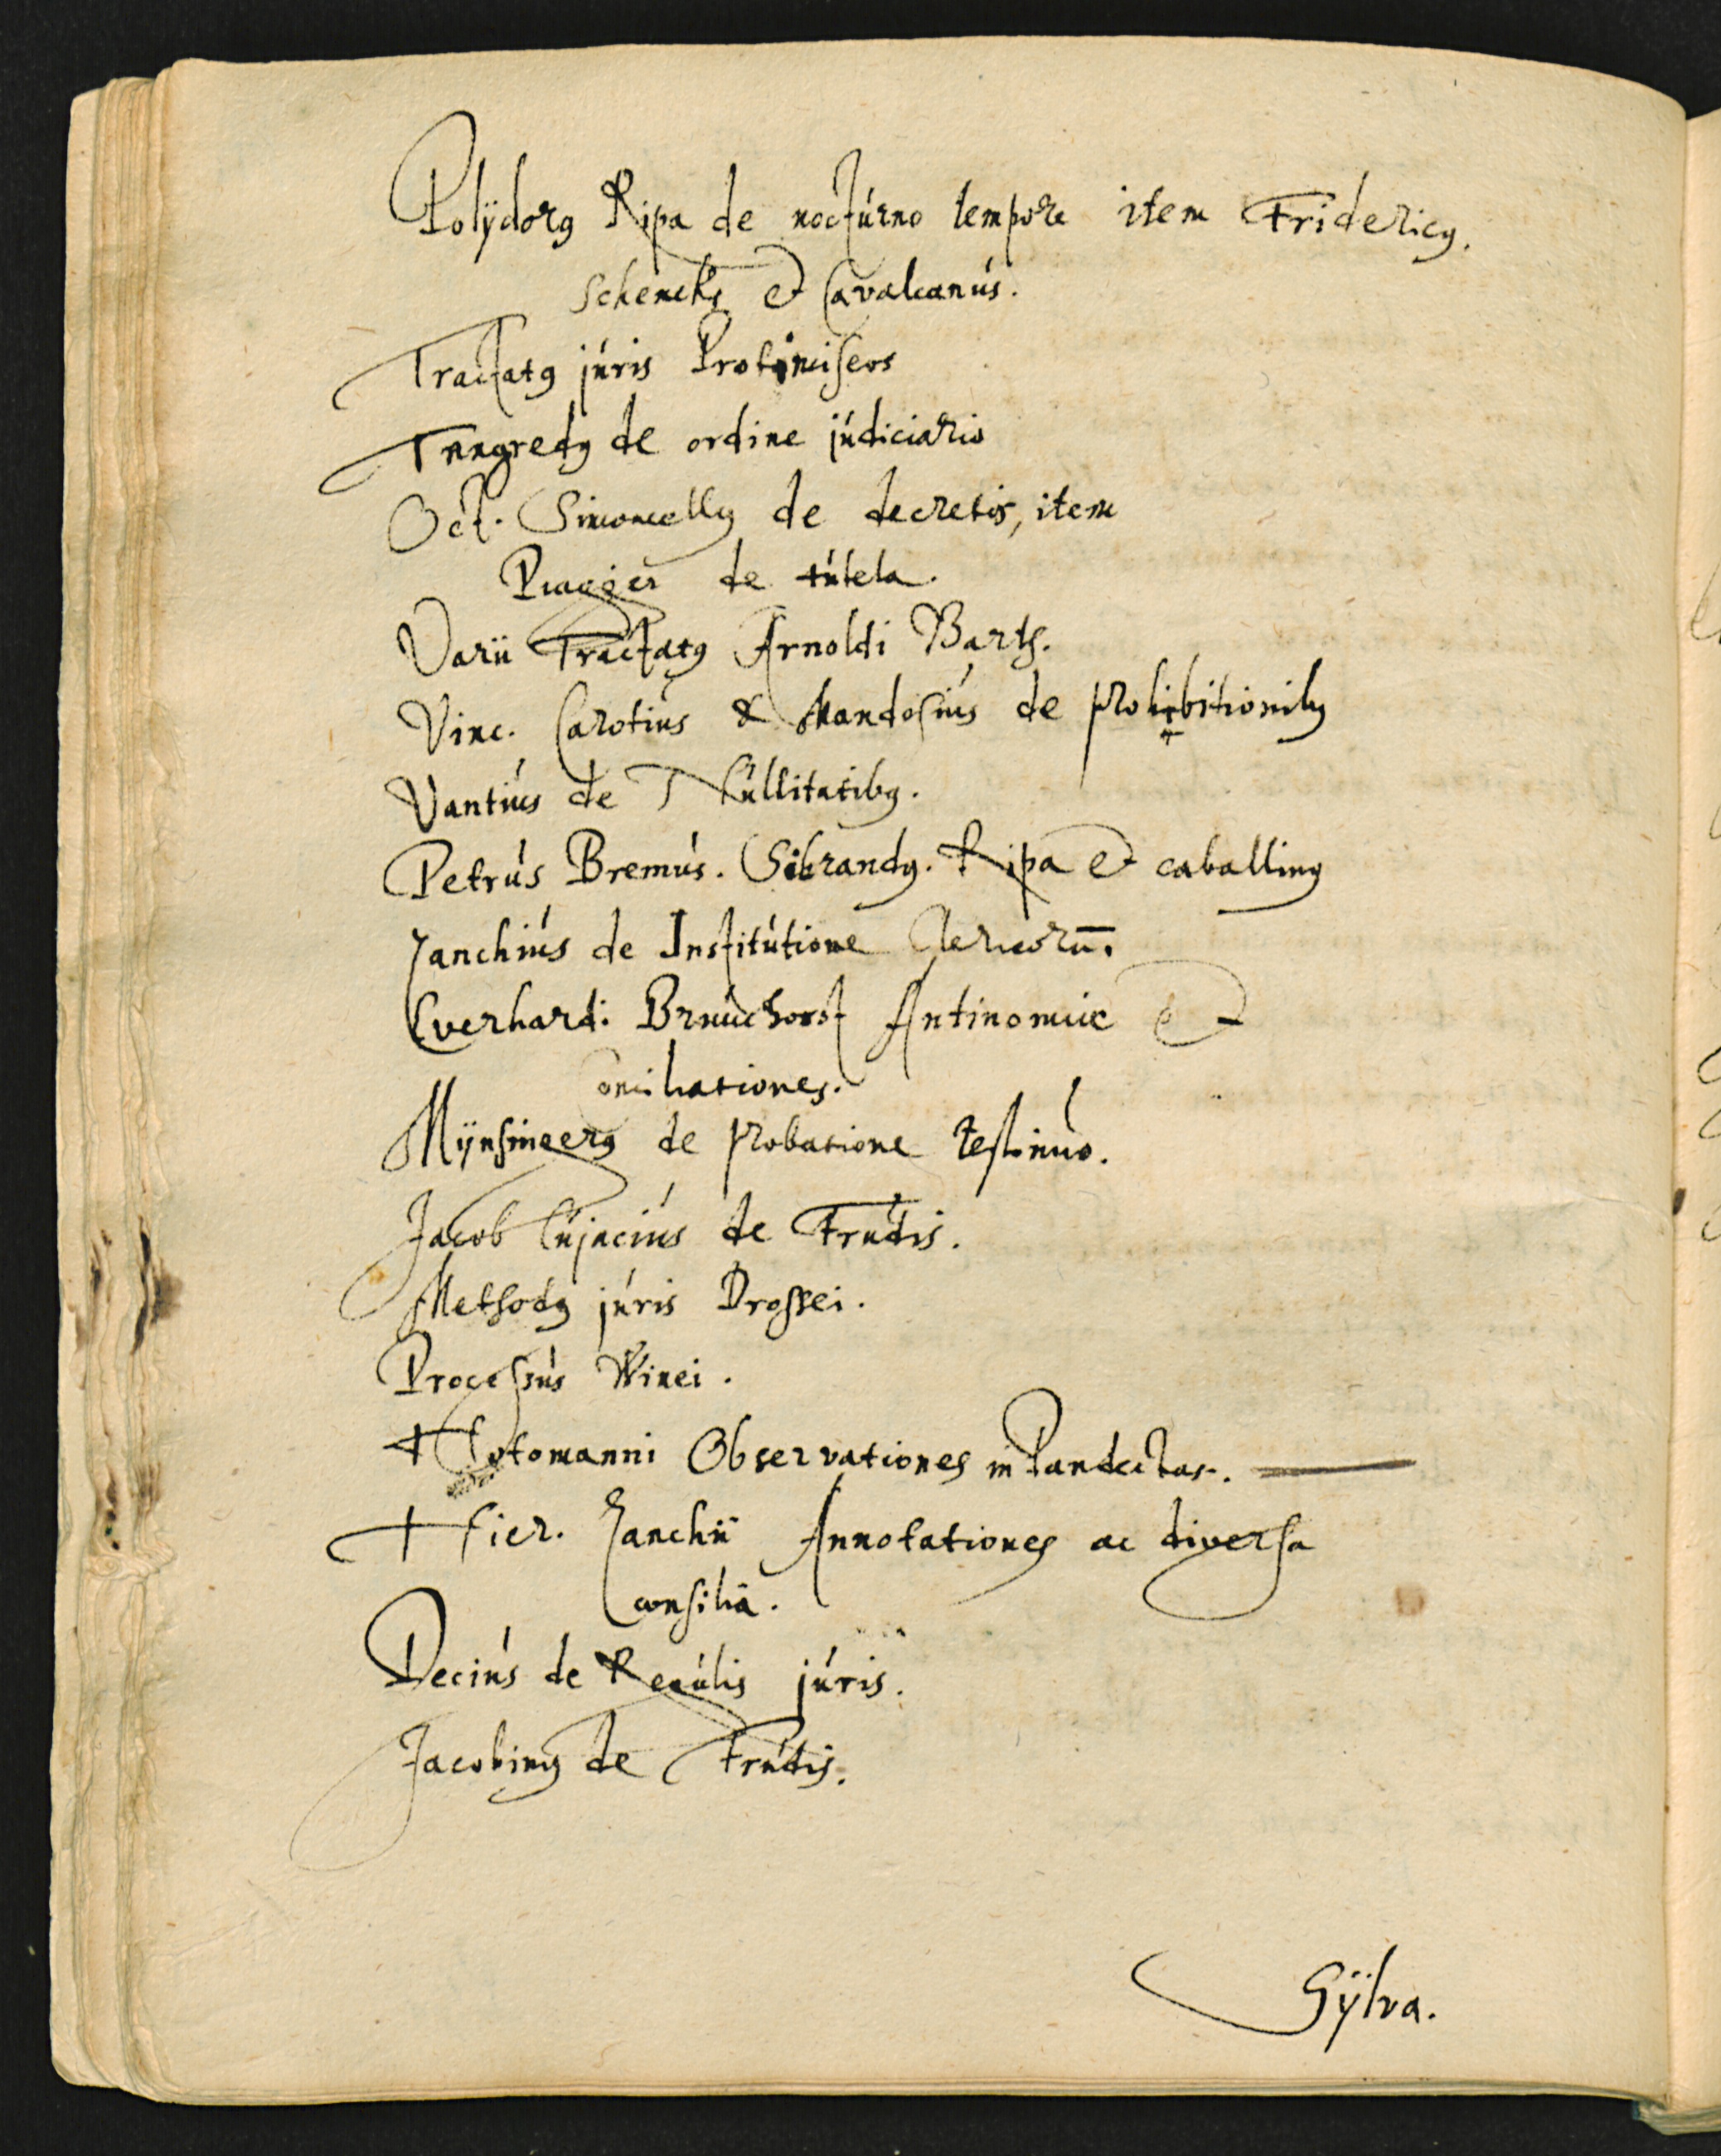 Polÿdorꝰ Ripa de nocturno tempore item Fridericꝰ.
Schenckꝰ et Cavalcanus.
Tractatꝰ juris Protimiseos
Tangredꝰ de ordine judiciario
Oct. Simoncellꝰ de decretis, item
Pragger de tutela.
Varii Tractatꝰ Arnoldi Barts.
Vinc. Carotius & Mandosius de prohibitionibꝰ
Vantius de Nullitatibꝰ.
Petrus Bremus. Sibrandꝰ. Ripa et caballinꝰ
Zanchius de Institutione Clericorū.
Everhardi Bruuchorst Antinomiæ et
Conciliationes.
Mÿnsingerꝰ de probatione testimo.
Jacob Cujacius de Frudis.
Methodꝰ juris Drossei.
Processus Winei.
Hotomanni Observationes in Pandectas.
Hier. Zanchii Annotationes ac diversa
consilia.
Decius de Regulis juris.
Jacobinꝰ de Frudis.
Sÿlva.